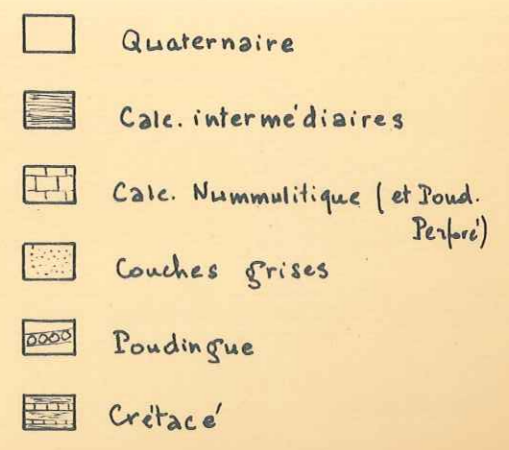 Quaternaire
Calc. intermédiaires
Calc. Nummulitique (et Poud.
Perforé)
Couches grises
Poudingue
Crétacé